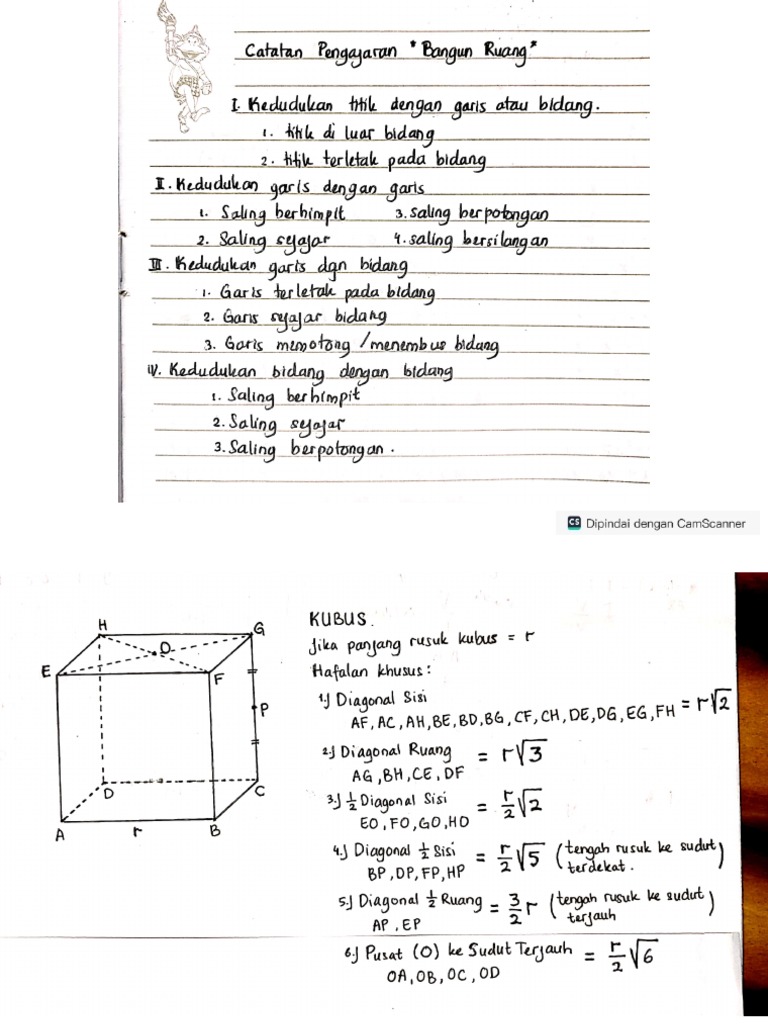 Catatan Pengajaran "Bangun Ruang"
I. Kedudukan titik dengan garis atau bidang.
1. titik di luar bidang
2. titik terletak pada bidang
II. Kedudukan garis dengan garis
1. Saling berhimpit 3. saling berpotongan
2. Saling sejajar 4. saling bersilangan
III. Kedudukan garis dgn bidang
1. Garis terletak pada bidang
2. Garis sejajar bidang
3. Garis memotong / menembus bidang
IV. Kedudukan bidang dengan bidang
1. Saling berhimpit
2. Saling sejajar
3. Saling berpotongan.
CS Dipindai dengan CamScanner
H
G
O
E
F
P
D
C
A
r
B
KUBUS.
Jika panjang rusuk kubus = r
Hafalan khusus:
1.) Diagonal Sisi
AF, AC, AH, BE, BD, BG, CF, CH, DE, DG, EG, FH = r√2
2.) Diagonal Ruang = r√3
AG, BH, CE, DF
3.) 1/2 Diagonal Sisi = r/2 √2
EO, FO, GO, HO
4.) Diagonal 1/2 Sisi = r/2 √5 (tengah rusuk ke sudut terdekat.)
BP, DP, FP, HP
5.) Diagonal 1/2 Ruang = 3/2 r (tengah rusuk ke sudut terjauh)
AP, EP
6.) Pusat (O) ke Sudut Terjauh = r/2 √6
OA, OB, OC, OD